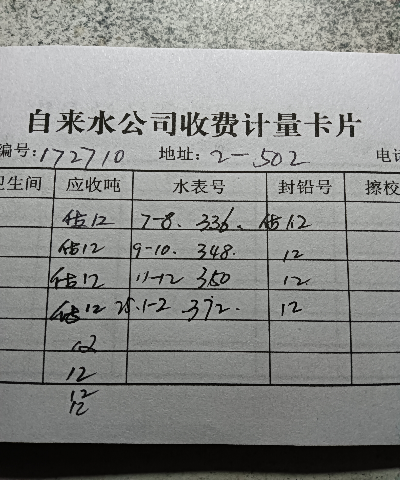 自来水公司收费计量卡片
编号:172710 地址: 2-502 电话
卫生间 应收吨 水表号 封铅号 擦校
估12 7-8. 336. 估12
估12 9-10. 348. 12
估12 11-12 360 12
估12 25.1-2 372. 12
12
12
12
12